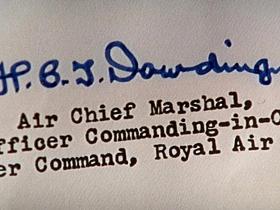 H.C.T. Dowding
Air Chief Marshal,
fficer Commanding-in-C
er Command, Royal Air